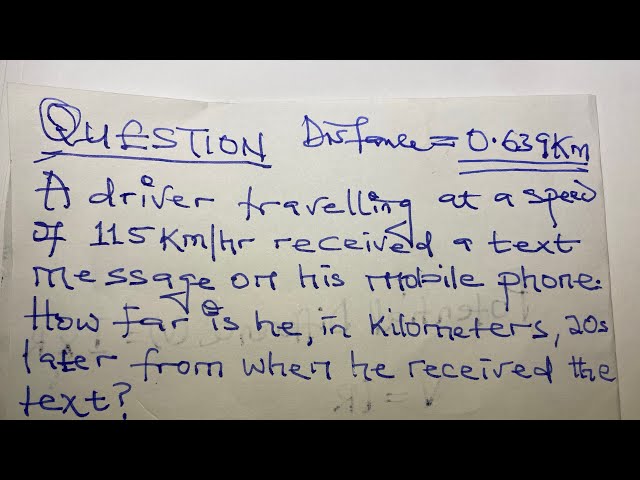 QUESTION Distance = 0.639Km
A driver travelling at a speed
of 115 Km/hr received a text
message on his mobile phone.
How far is he, in kilometers, 20s
later from when he received the
text?